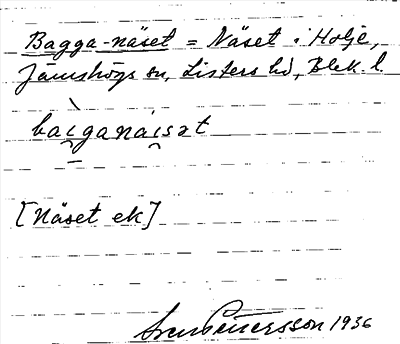 Bagga-näset = Näset . Holje,
Jämshögs sn, Listers hd, Blek. l.
baiganaisət
[Näset ek]
Sven Petersson 1936